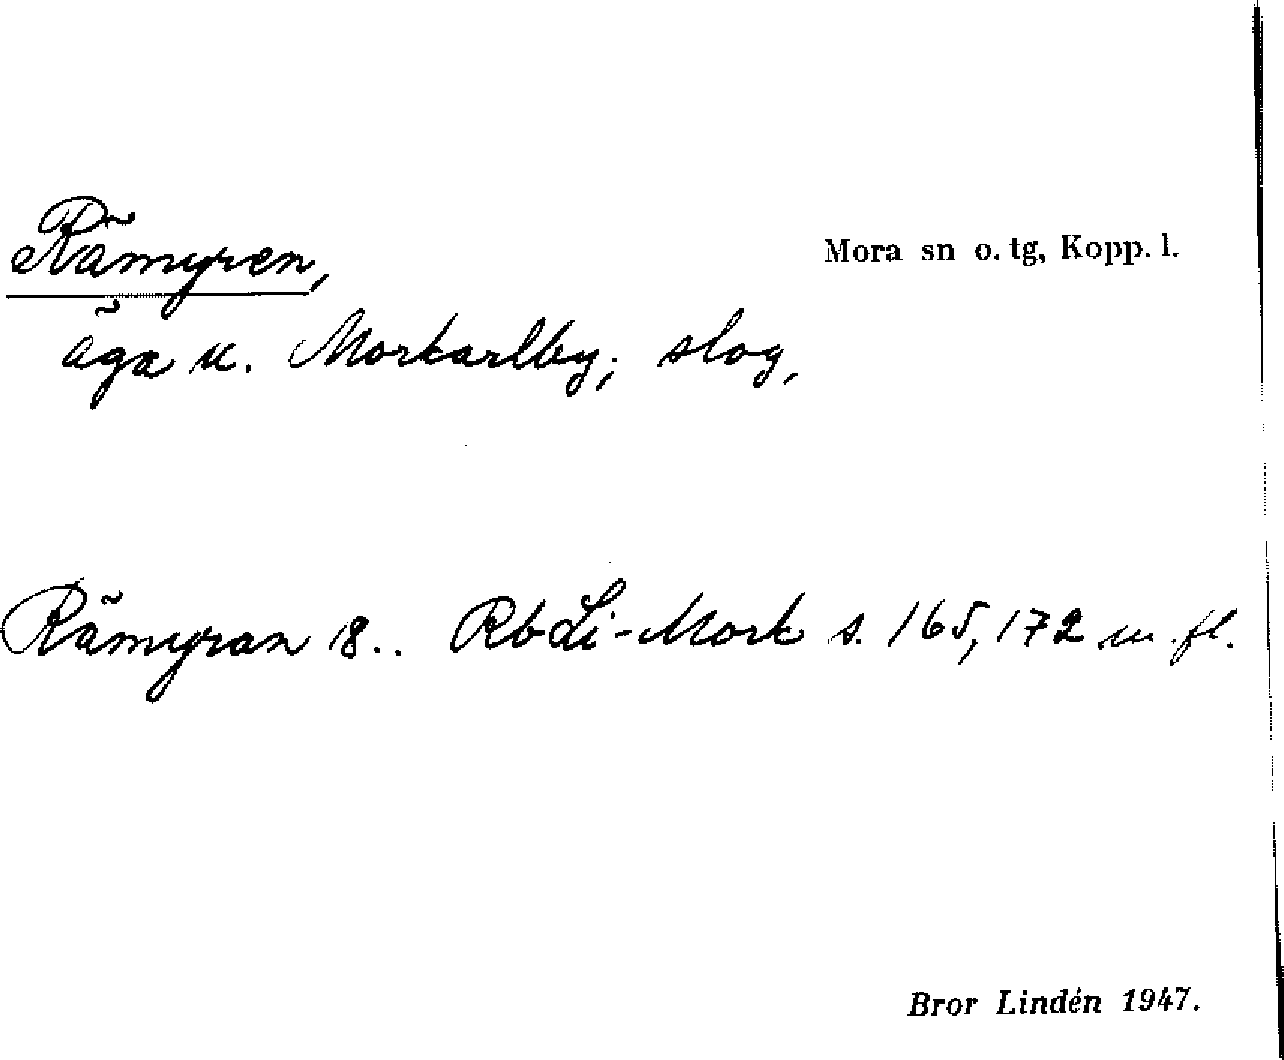 Rämyren,
Mora sn o. tg, Kopp. l.
äga u. Morkarlby; slog,
Rämyran 18.. Rb Li-Mork s. 165, 172 m. fl.
Bror Lindén 1947.